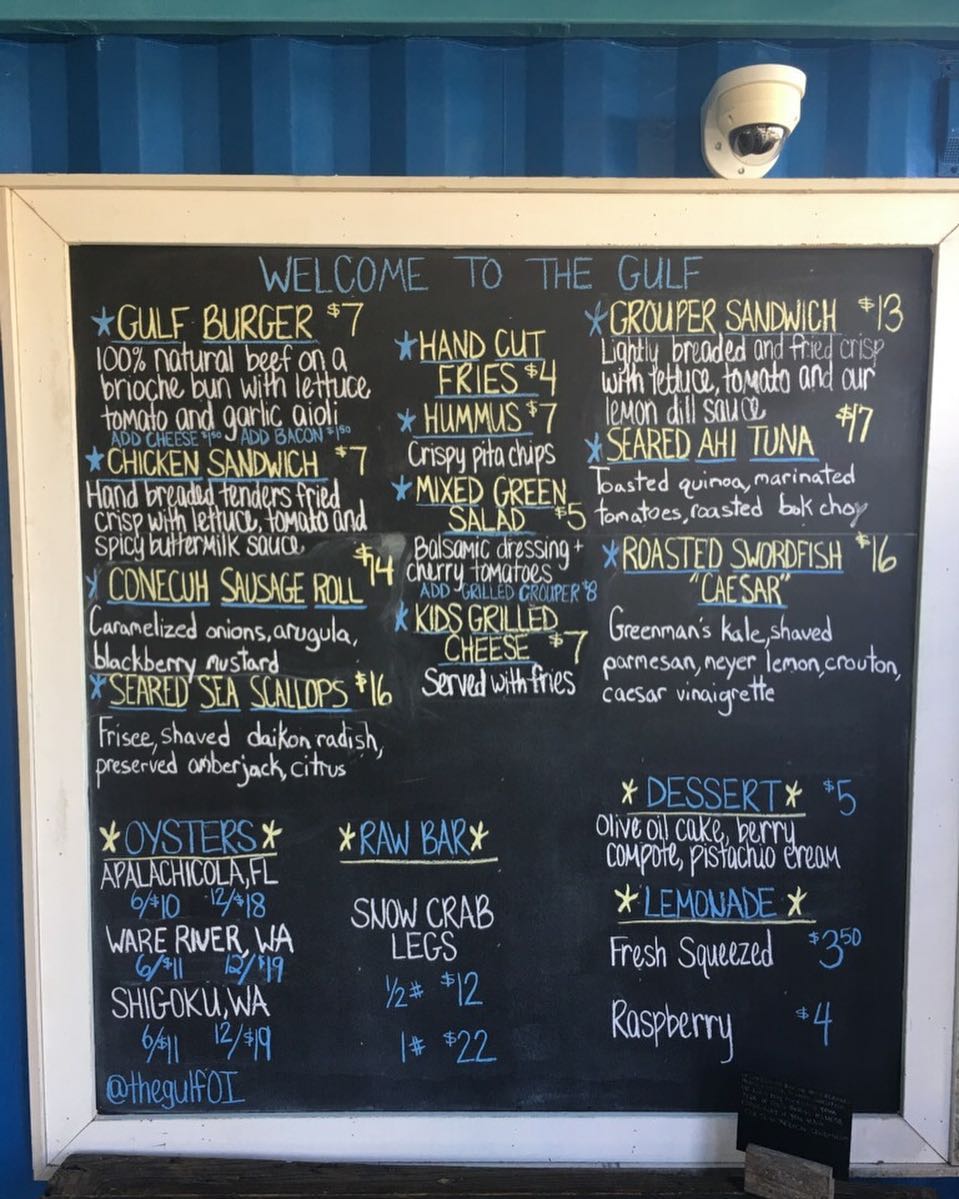 WELCOME TO THE GULF
*GULF BURGER $7
100% natural beef on a
brioche bun with lettuce
tomato and garlic aioli
ADD CHEESE $1.50 ADD BACON $1.50
*CHICKEN SANDWICH $7
Hand breaded tenders fried
crisp with lettuce, tomato and
spicy buttermilk sauce
$14
*CONECUH SAUSAGE ROLL
Caramelized onions, arugula,
blackberry mustard
*SEARED SEA SCALLOPS $16
Frisee, shaved daikon radish,
preserved amberjack, citrus
*HAND CUT
FRIES $4
*HUMMUS $7
Crispy pita chips
*MIXED GREEN
SALAD $5
Balsamic dressing +
cherry tomatoes
ADD GRILLED GROUPER $8
*KIDS GRILLED
CHEESE $7
Served with fries
*GROUPER SANDWICH $13
Lightly breaded and fried crisp
with lettuce, tomato and our
lemon dill sauce
$17
*SEARED AHI TUNA
Toasted quinoa, marinated
tomatoes, roasted bok choy
*ROASTED SWORDFISH $16
"CAESAR"
Greenman's kale, shaved
parmesan, meyer lemon, crouton,
caesar vinaigrette
*OYSTERS*
APALACHICOLA, FL
6/$10 12/$18
WARE RIVER, WA
6/$11 12/$19
SHIGOKU, WA
6/$11 12/$19
@thegulfOI
*RAW BAR*
SNOW CRAB
LEGS
1/2# $12
1# $22
*DESSERT* $5
Olive oil cake, berry
compote, pistachio cream
*LEMONADE*
Fresh Squeezed $3.50
Raspberry $4